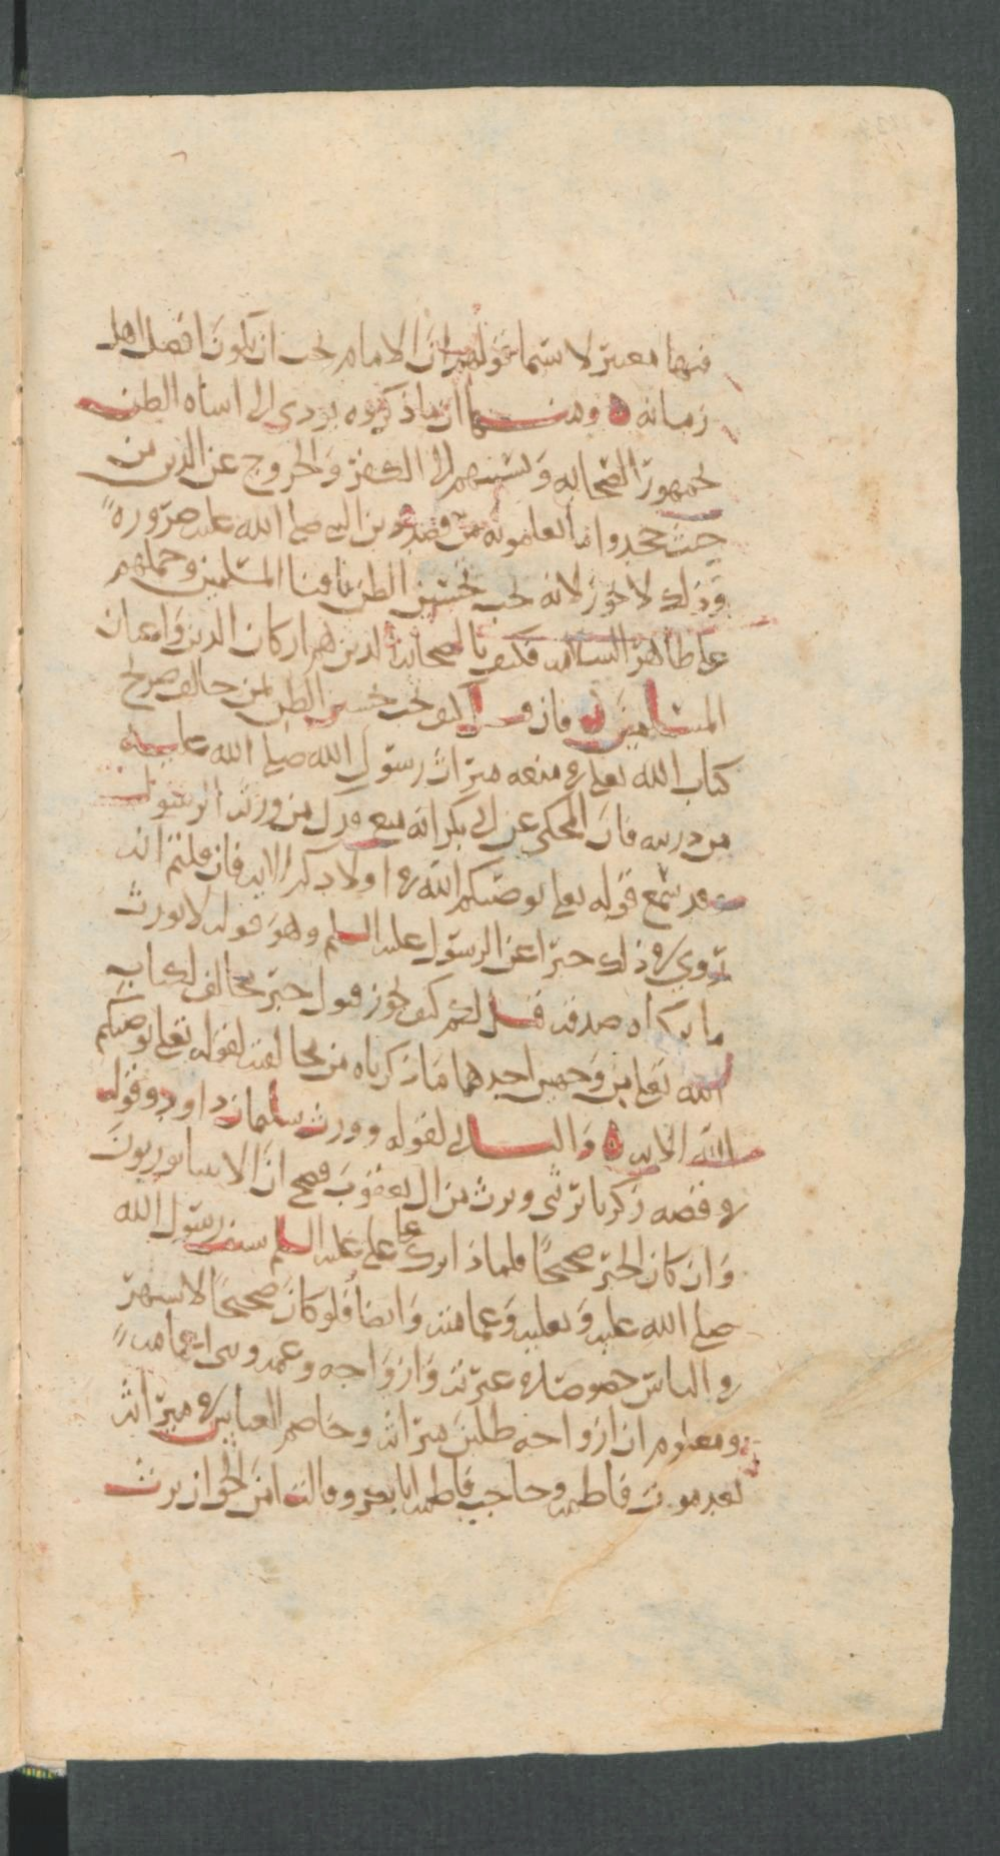 فيها معتبر لا سيما قولهم ان الامام يجب ان يكون افضل اهل
زمانه ومنـها ان ما ذكروه يودي الى اساه الظن
بجمهور الصحابه ونسبتهم الى الكفر والخروج عن الدين من
حيث جحدوا ما يعلمونه من قصد دين النبي صلى الله عليه ضروره
وذلك لا يجوز لانه يجب تحسين الظن بافنا المسلمين وحملهم
على ظاهر السلامه فكيف بالصحابه الذين هم اركان الدين واعيان
المسلمين فان قيل كيف يجب تحسين الظن بمن خالف صريح
كتاب الله تعلى في منعه ميراث رسول الله صلى الله عليه
من ذريته فان المحكي عن ابي بكر انه منع من ورثه الرسول
وقد سمع قوله تعلى يوصيكم الله في اولادكم الايه فان قلتم انه
روي في ذلك خبرا عن الرسول عليه السلم وهو قوله لا نورث
ما تركناه صدقه قيل لكم كيف يجوز قبول خبر مخالف لكتاب
الله تعلى من وجهين احدهما ما ذكرناه من مخالفته لقوله تعلى يوصيكم
الله الايه والثاني لقوله وورث سليمان داوود وقوله
في قصه زكريا يرثني ويرث من ال يعقوب فصح ان الانبيا يورثون
وان كان الخبر صحيحا فلماذا ترك على علي عليه السلم سيف رسول الله
صلى الله عليه وبغلته وعمامته وايضا فلو كان صحيحا لاشتهر
في الناس خصوصا في عترته وازواجه وعمه وبني
ومعلوم ان ازواجه طلبن ميراثه وخاصم العباس في ميراثه
بعد موت فاطمه وحاجت فاطمه ابا بكر وقالت امن الجواز يرث